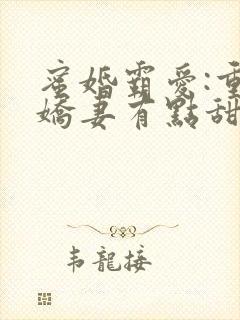 蜜婚霸愛:重
嬌妻有點甜
韦龍接